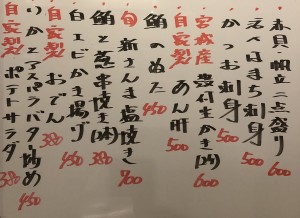 春貝・帆立二点盛り 600
天然はまち刺身 500
かつお刺身 500
宮城産 殻付生かき(2ケ) 600
自家製 あん肝 500
鮪のぬた 450
旬 新さんま塩焼き 700
鮪と葱串焼き(2本) 380
白エビかき揚げ 450
自家製 おでん 380
いかとアスパラバター炒め 450
自家製 ポテトサラダ 380